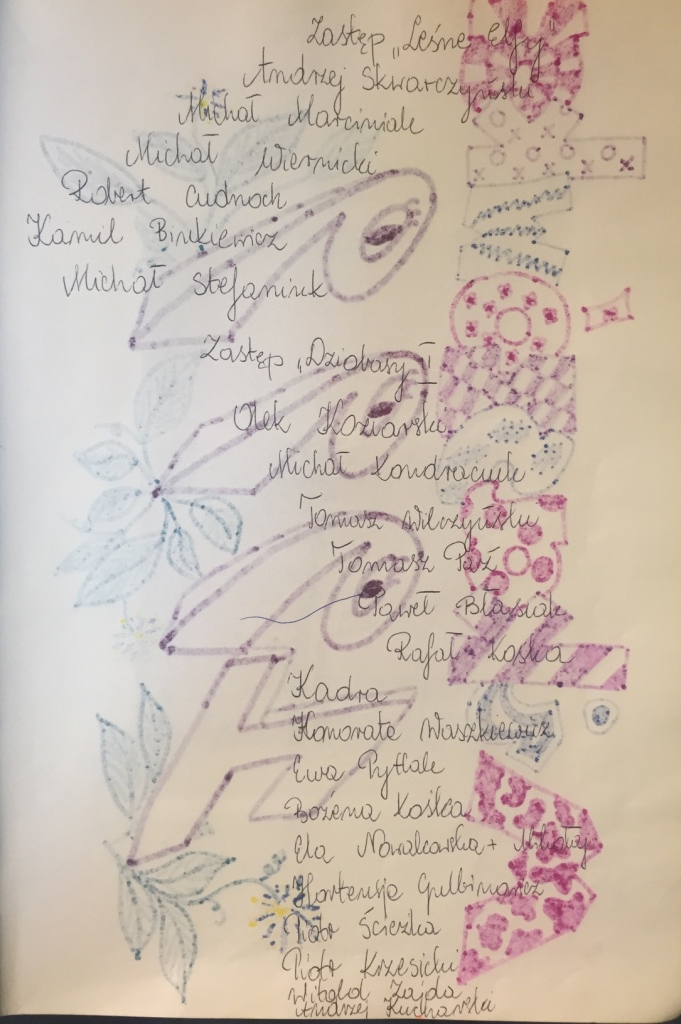 Zastęp „Leśne Elfy"
Andrzej Skwarczyński
Michał Marciniak
Michał Wiernicki
Robert Cudnoch
Kamil Binkiewicz
Michał Stefaniuk
Zastęp „Dziobasy II
Olek Koziarski
Michał Kondraciuk
Tomasz Wilczyński
Tomasz Paź
Paweł Błasiak
Rafał Kośka
Kadra
Honorata Waszkiewicz
Ewa Pytlak
Bożena Kośka
Ela Nowakowska + Mikołaj
Hortensja Gulbinowicz
Piotr Ścieżka
Piotr Krzesicki
Witold Zajda
Andrzej Kucharski